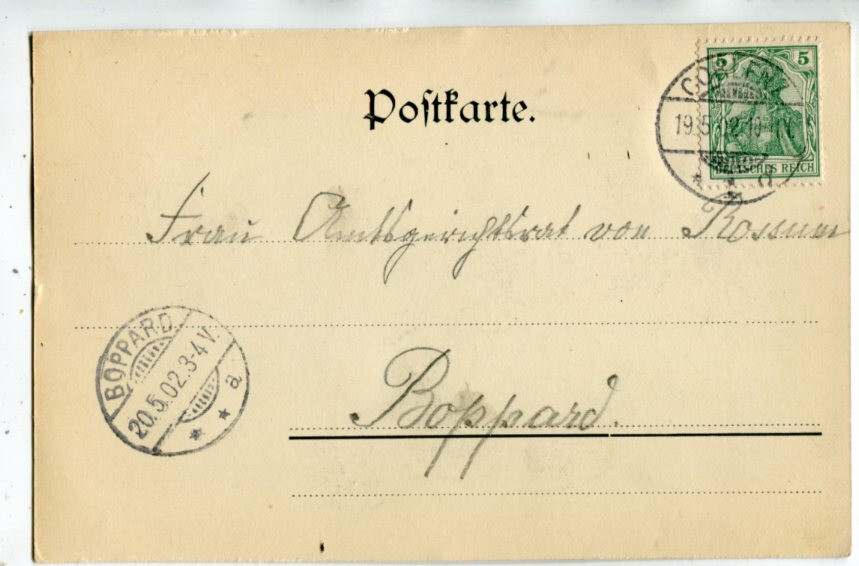 Postkarte.
5 5
DEUTSCHES REICH
19.5.02.10
Frau Amtsgerichtsrat von Rossum
Boppard.
BOPPARD
20.5.02.3-4 V.
* * a